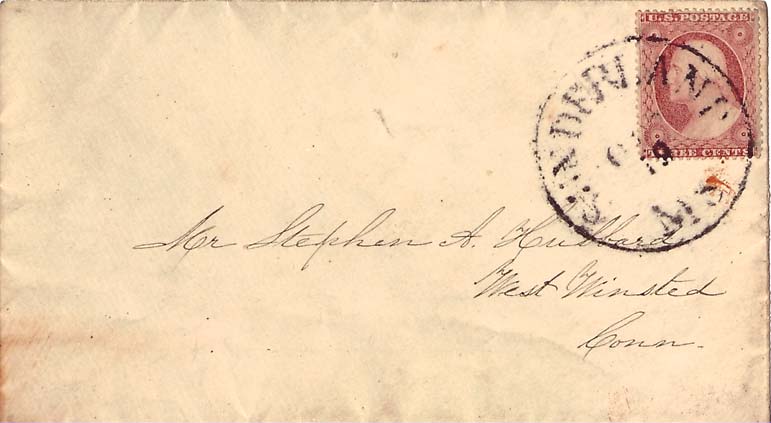 U.S. POSTAGE
THREE CENTS
SUNDERLAND
19
Mr Stephen A. Hubbard
West Winsted
Conn.